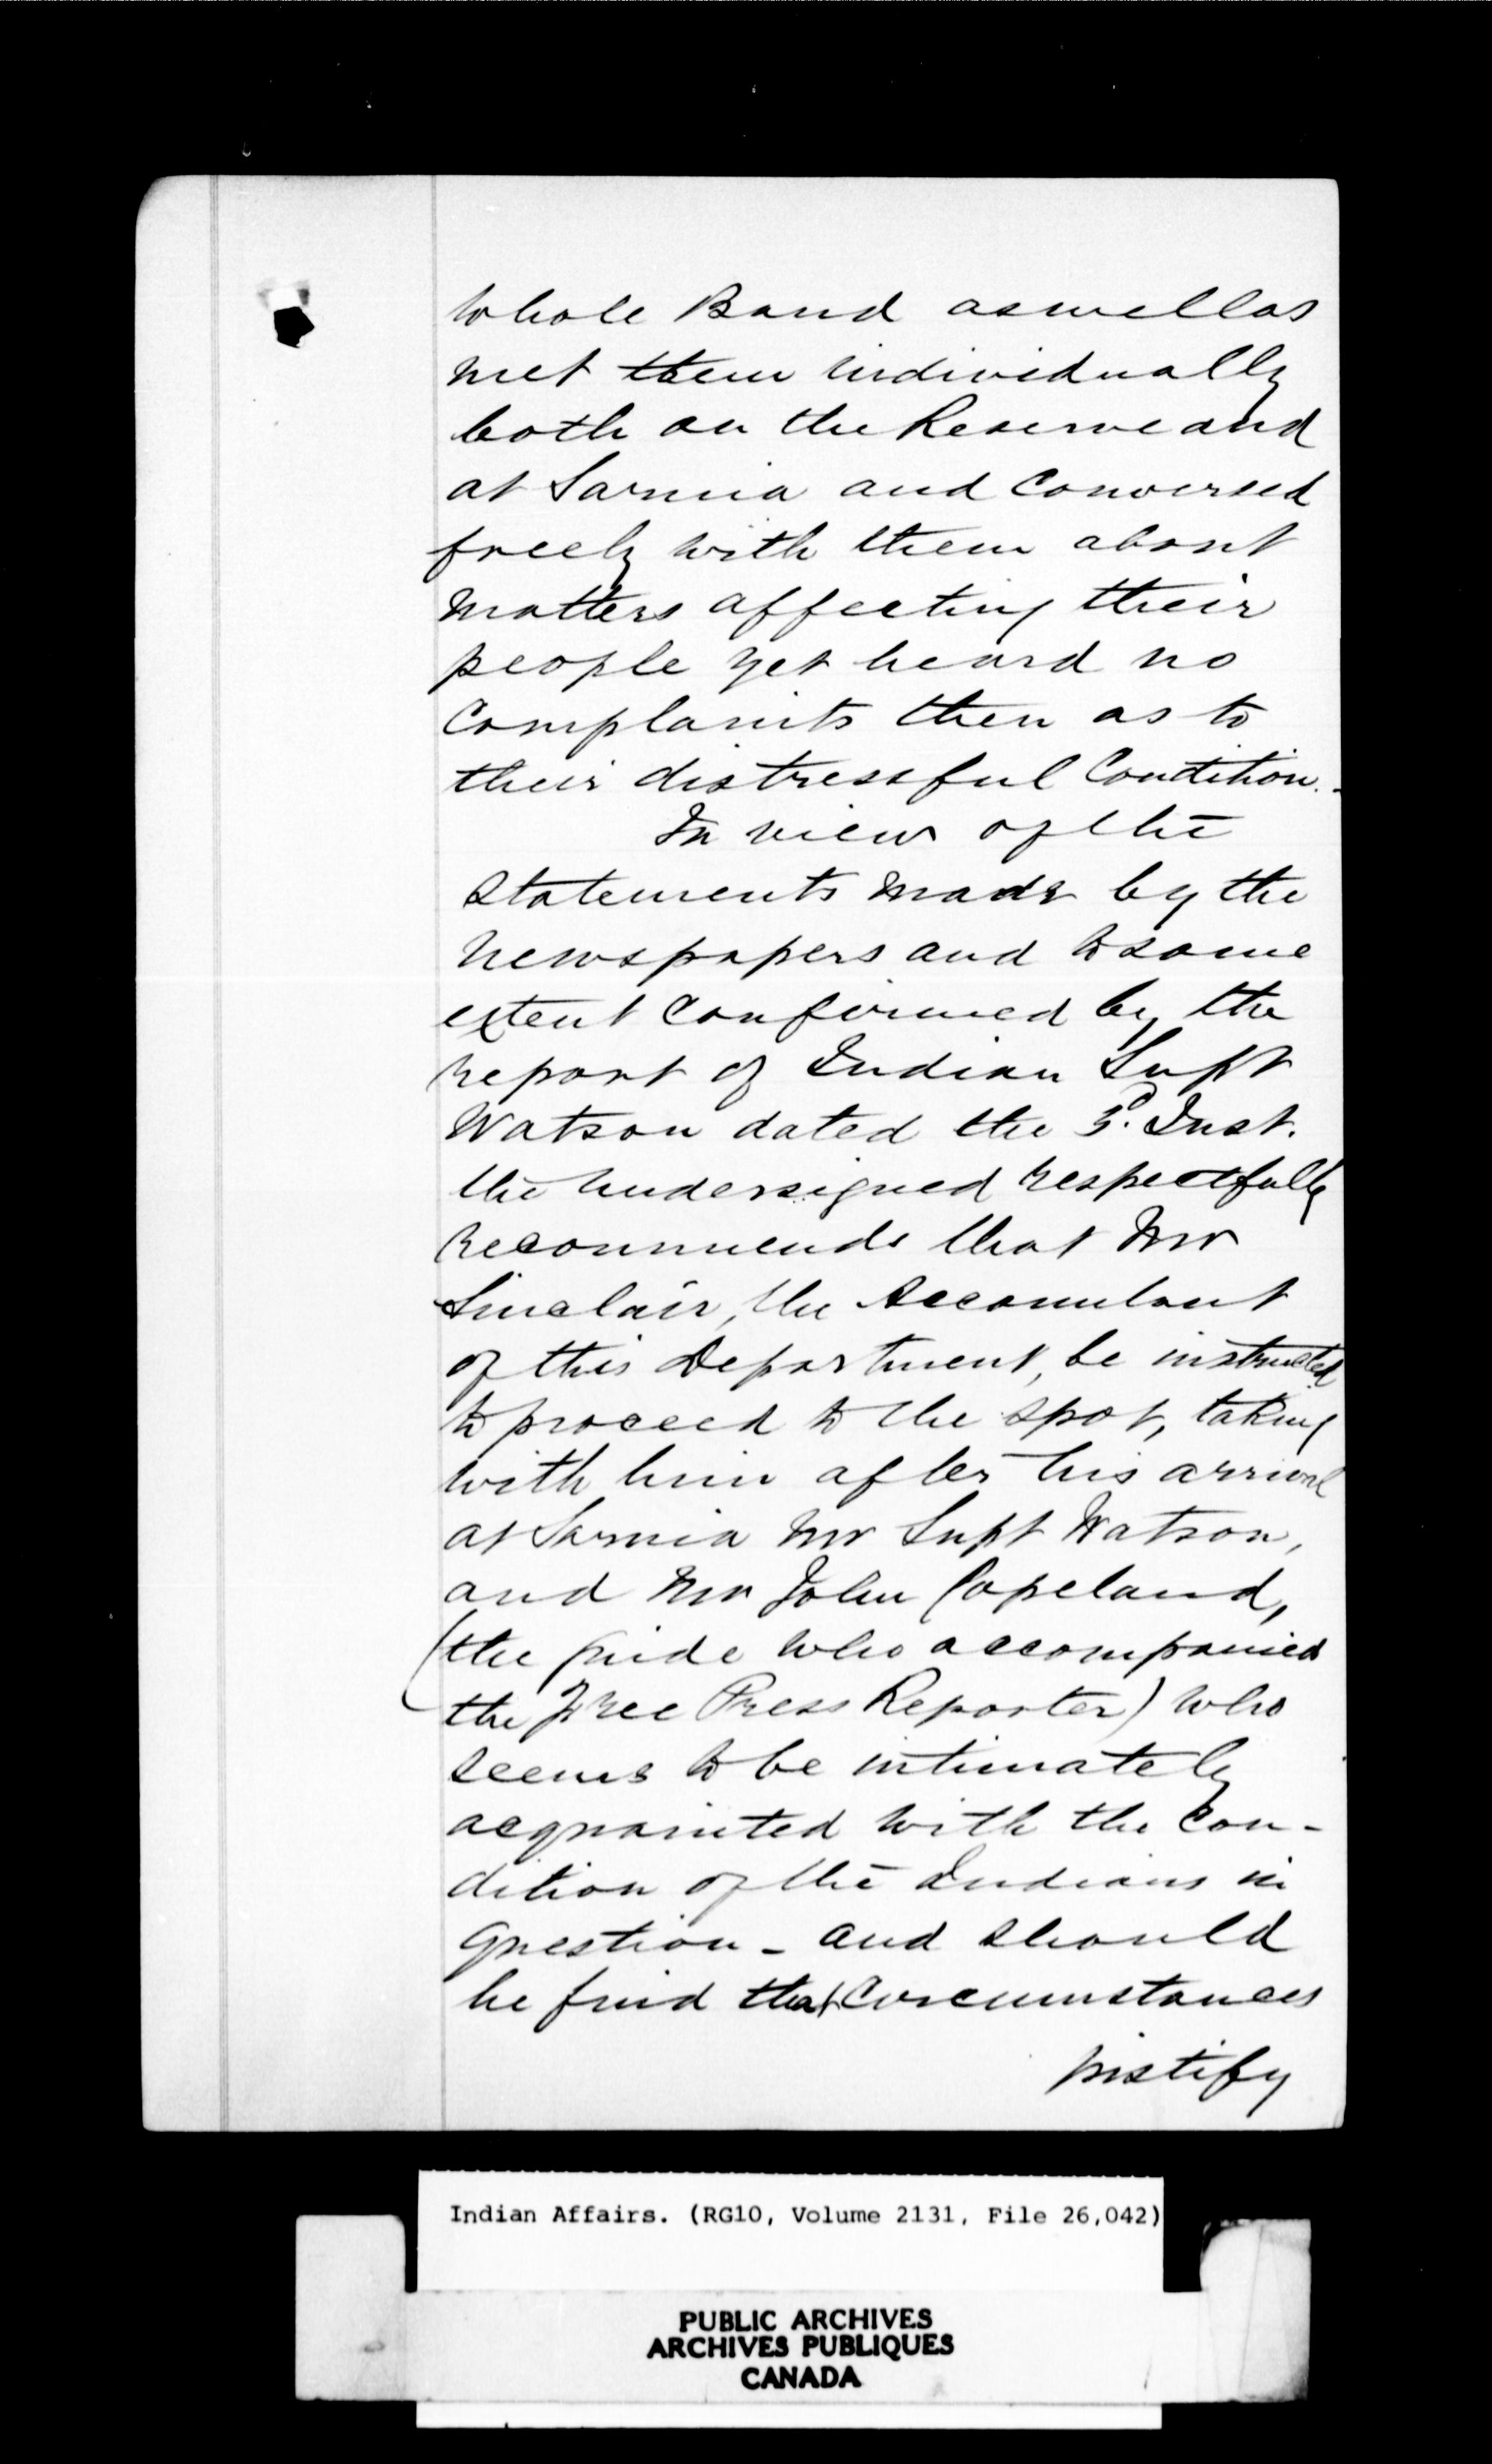 whole Band as well as
met them individually
both on the Reserve and
at Sarnia and Conversed
freely with them about
Matters affecting their
people yet heard no
Complaints then as to
their distressful Condition.
In view of the
statements made by the
newspapers and to some
extent confirmed by the
report of Indian Supt
Watson dated the 3d. Inst.
the undersigned respectfully
recommends that Mr
Sinclair, the Accountant
of this Department, be instructed
to proceed to the spot, taking
with him after his arrival
at Sarnia Mr Supt Watson,
and Mr John Copeland,
(the guide who accompanied
the Free Press Reporter) who
seems to be intimately
acquainted with the con-
dition of the Indians in
question - and should
he find that Circumstances
justify
Indian Affairs. (RG10, Volume 2131, File 26,042)
PUBLIC ARCHIVES
ARCHIVES PUBLIQUES
CANADA